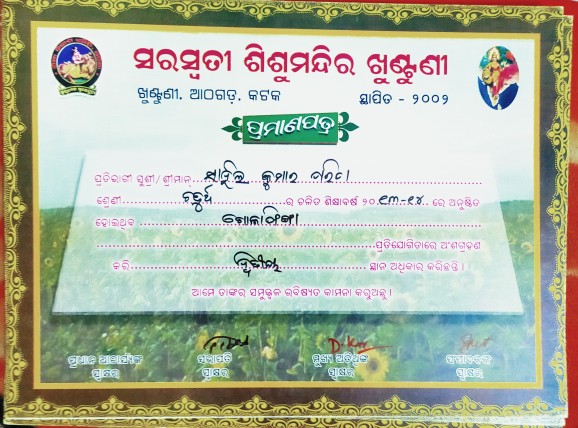 ସରସ୍ୱତୀ ଶିଶୁମନ୍ଦିର ଖୁଣ୍ଟୁଣୀ
ଖୁଣ୍ଟୁଣୀ, ଆଠଗଡ଼, କଟକ ସ୍ଥାପିତ - ୨୦୦୨
ପ୍ରମାଣପତ୍ର
ପ୍ରତିଯୋଗୀ ସୁଶ୍ରୀ/ଶ୍ରୀମାନ କୁମାର
ଶ୍ରେଣୀ ଚତୁର୍ଥ ର ଚଳିତ ଶିକ୍ଷାବର୍ଷ ୨୦୧୩-୧୪ ରେ ଅନୁଷ୍ଠିତ
ହୋଇଥିବା
ପ୍ରତିଯୋଗିତାରେ ଅଂଶଗ୍ରହଣ
କରି ଦ୍ୱିତୀୟ ସ୍ଥାନ ଅଧିକାର କରିଛନ୍ତି।
ଆମେ ତାଙ୍କର ସମୁଜ୍ଜ୍ୱଳ ଭବିଷ୍ୟତ କାମନା କରୁଅଛୁ।
ପ୍ରଧାନ ଆଚାର୍ଯ୍ୟଙ୍କ ସଭାପତି ମୁଖ୍ୟ ଅତିଥିଙ୍କ ସମ୍ପାଦକଙ୍କ
ସ୍ୱାକ୍ଷର ସ୍ୱାକ୍ଷର ସ୍ୱାକ୍ଷର ସ୍ୱାକ୍ଷର